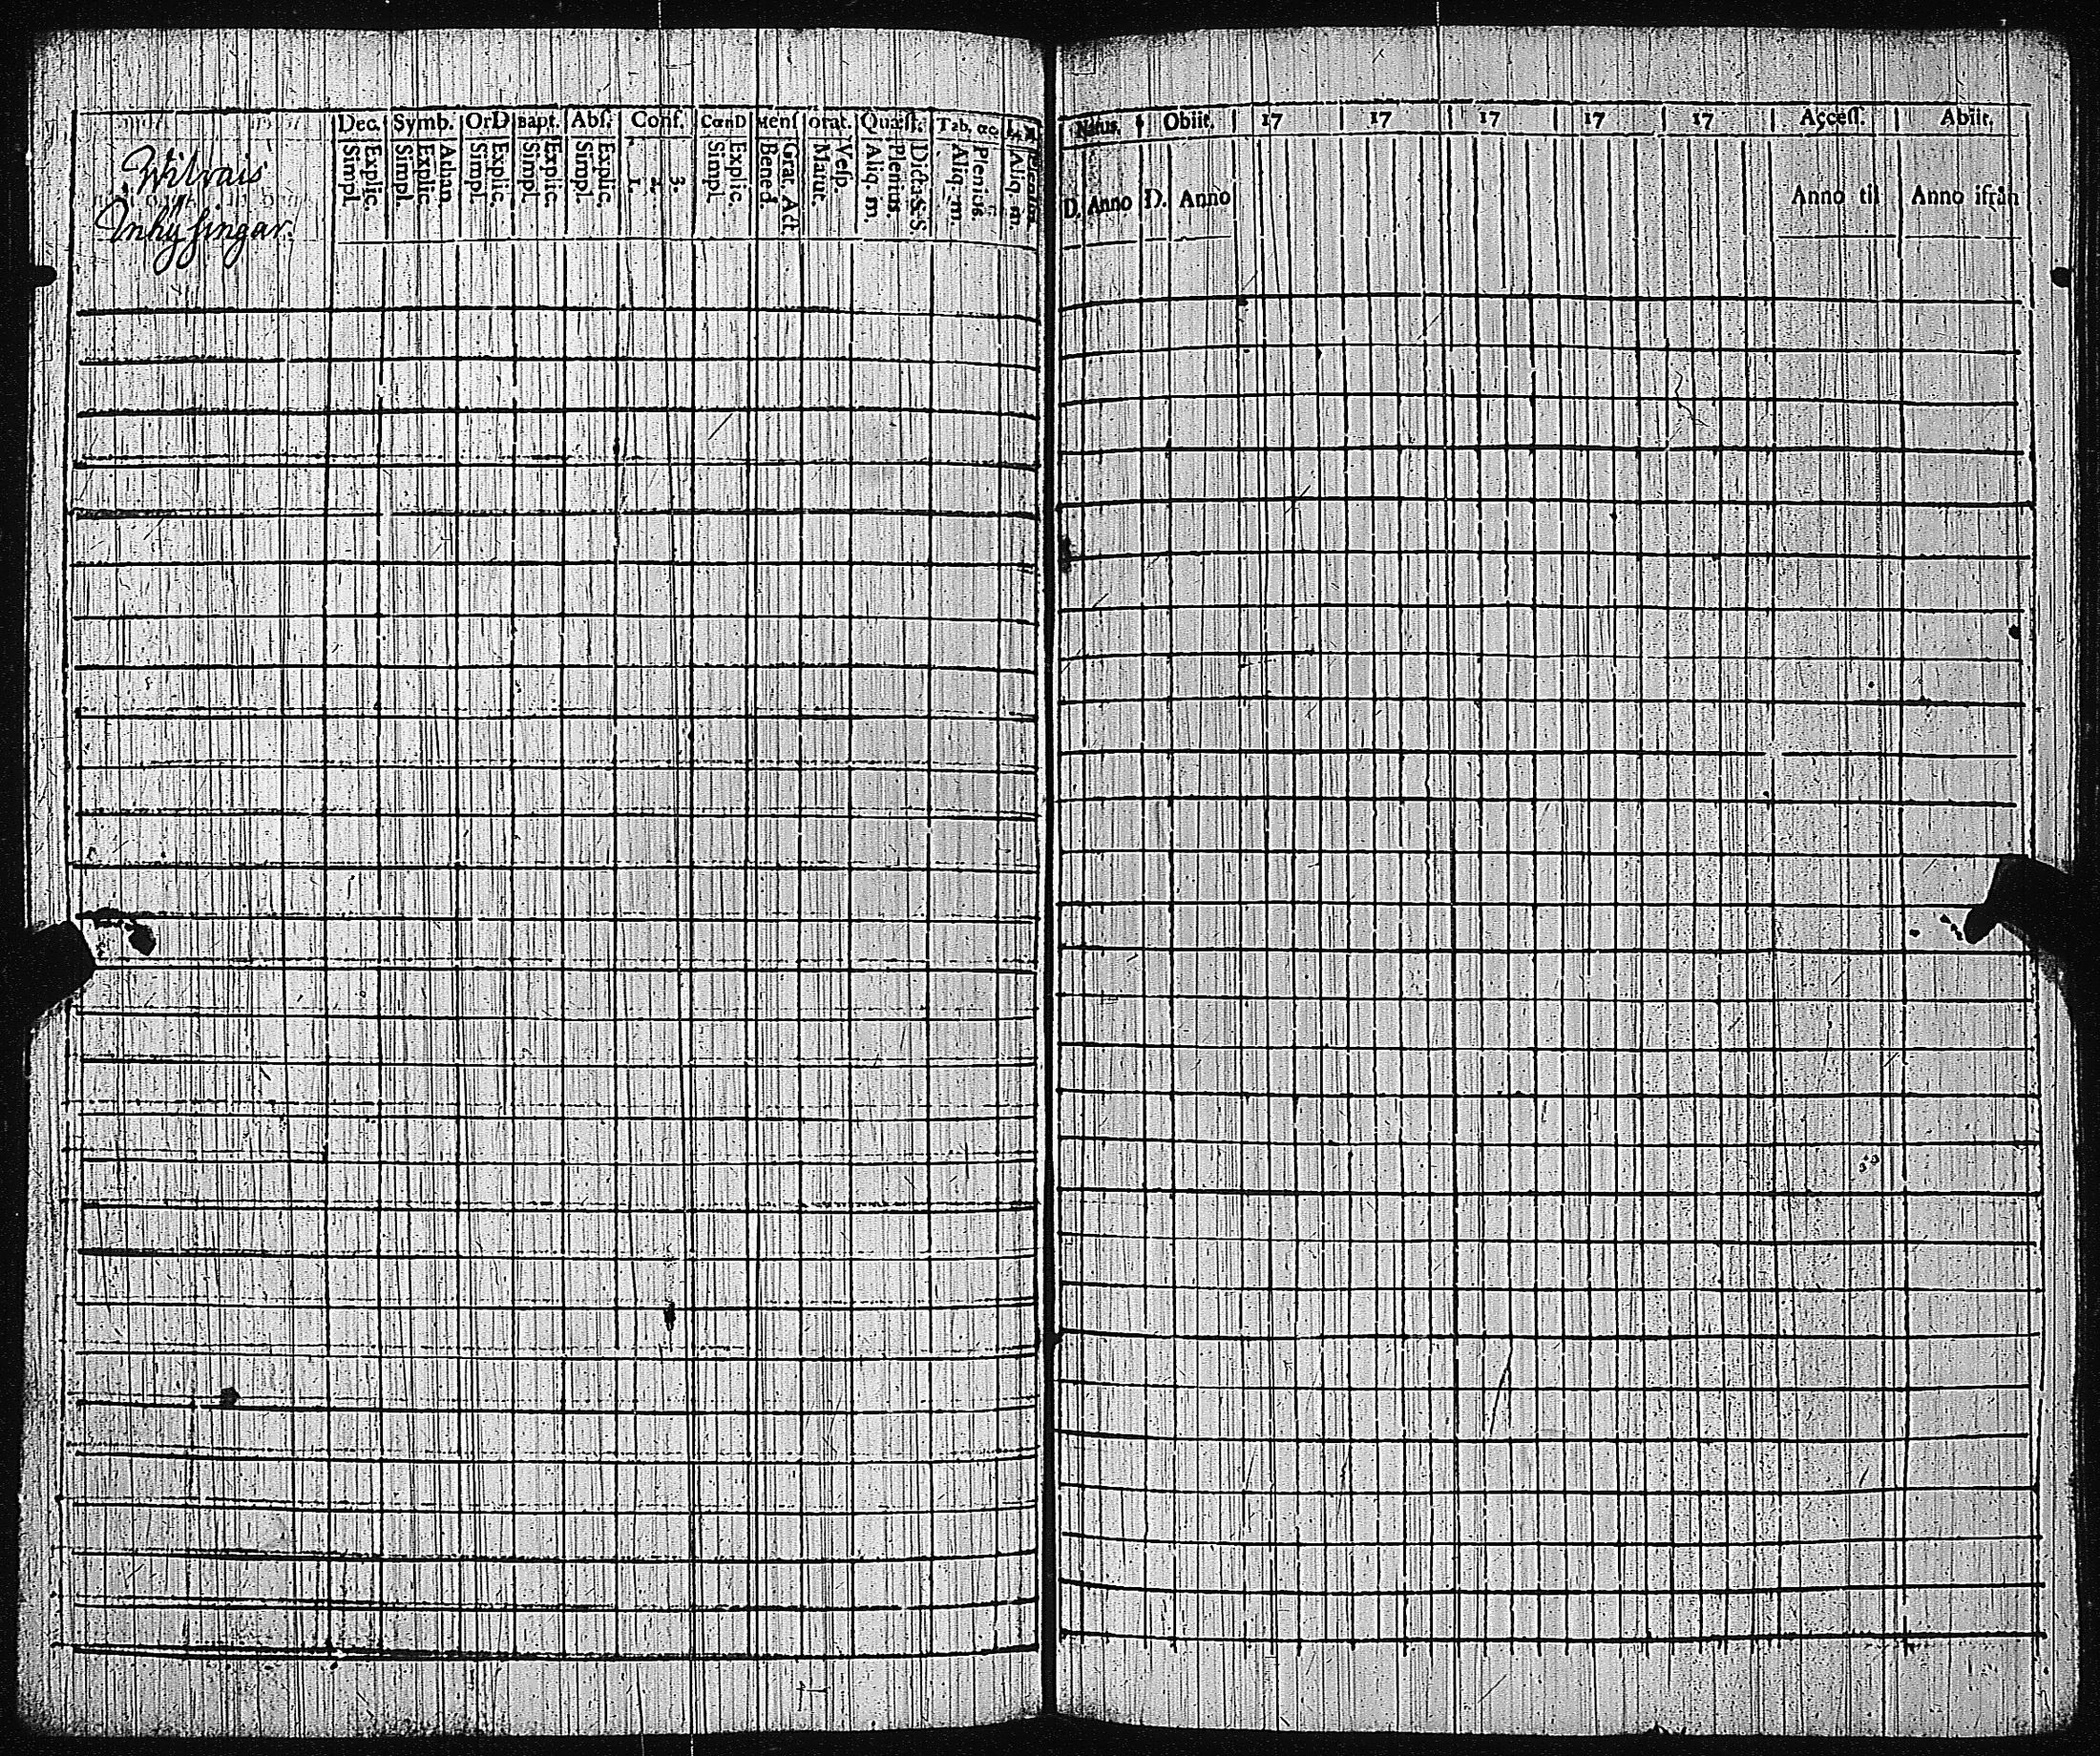 Dec. Symb. OrD Bapt. Abſ. Conf. CœnD Menſ orat. Quæſt. Tab. œc
Wilvais
Inhyſingar.
Explic. Simpl.
Athan Explic Simpl.
Explic. Simpl.
Explic. Simpl.
Explic. Simpl.
3. 2. 1.
Explic. Simpl.
Grat. Act Bened.
Veſp. Matut.
Dicta S. S. Plenius. Aliq. m.
Plenius Aliq. m.
Plenius. Aliq. m.
Natus. Obiit. 17 17 17 17 17 Acceſſ. Abiit.
D. Anno D. Anno Anno til Anno ifrån